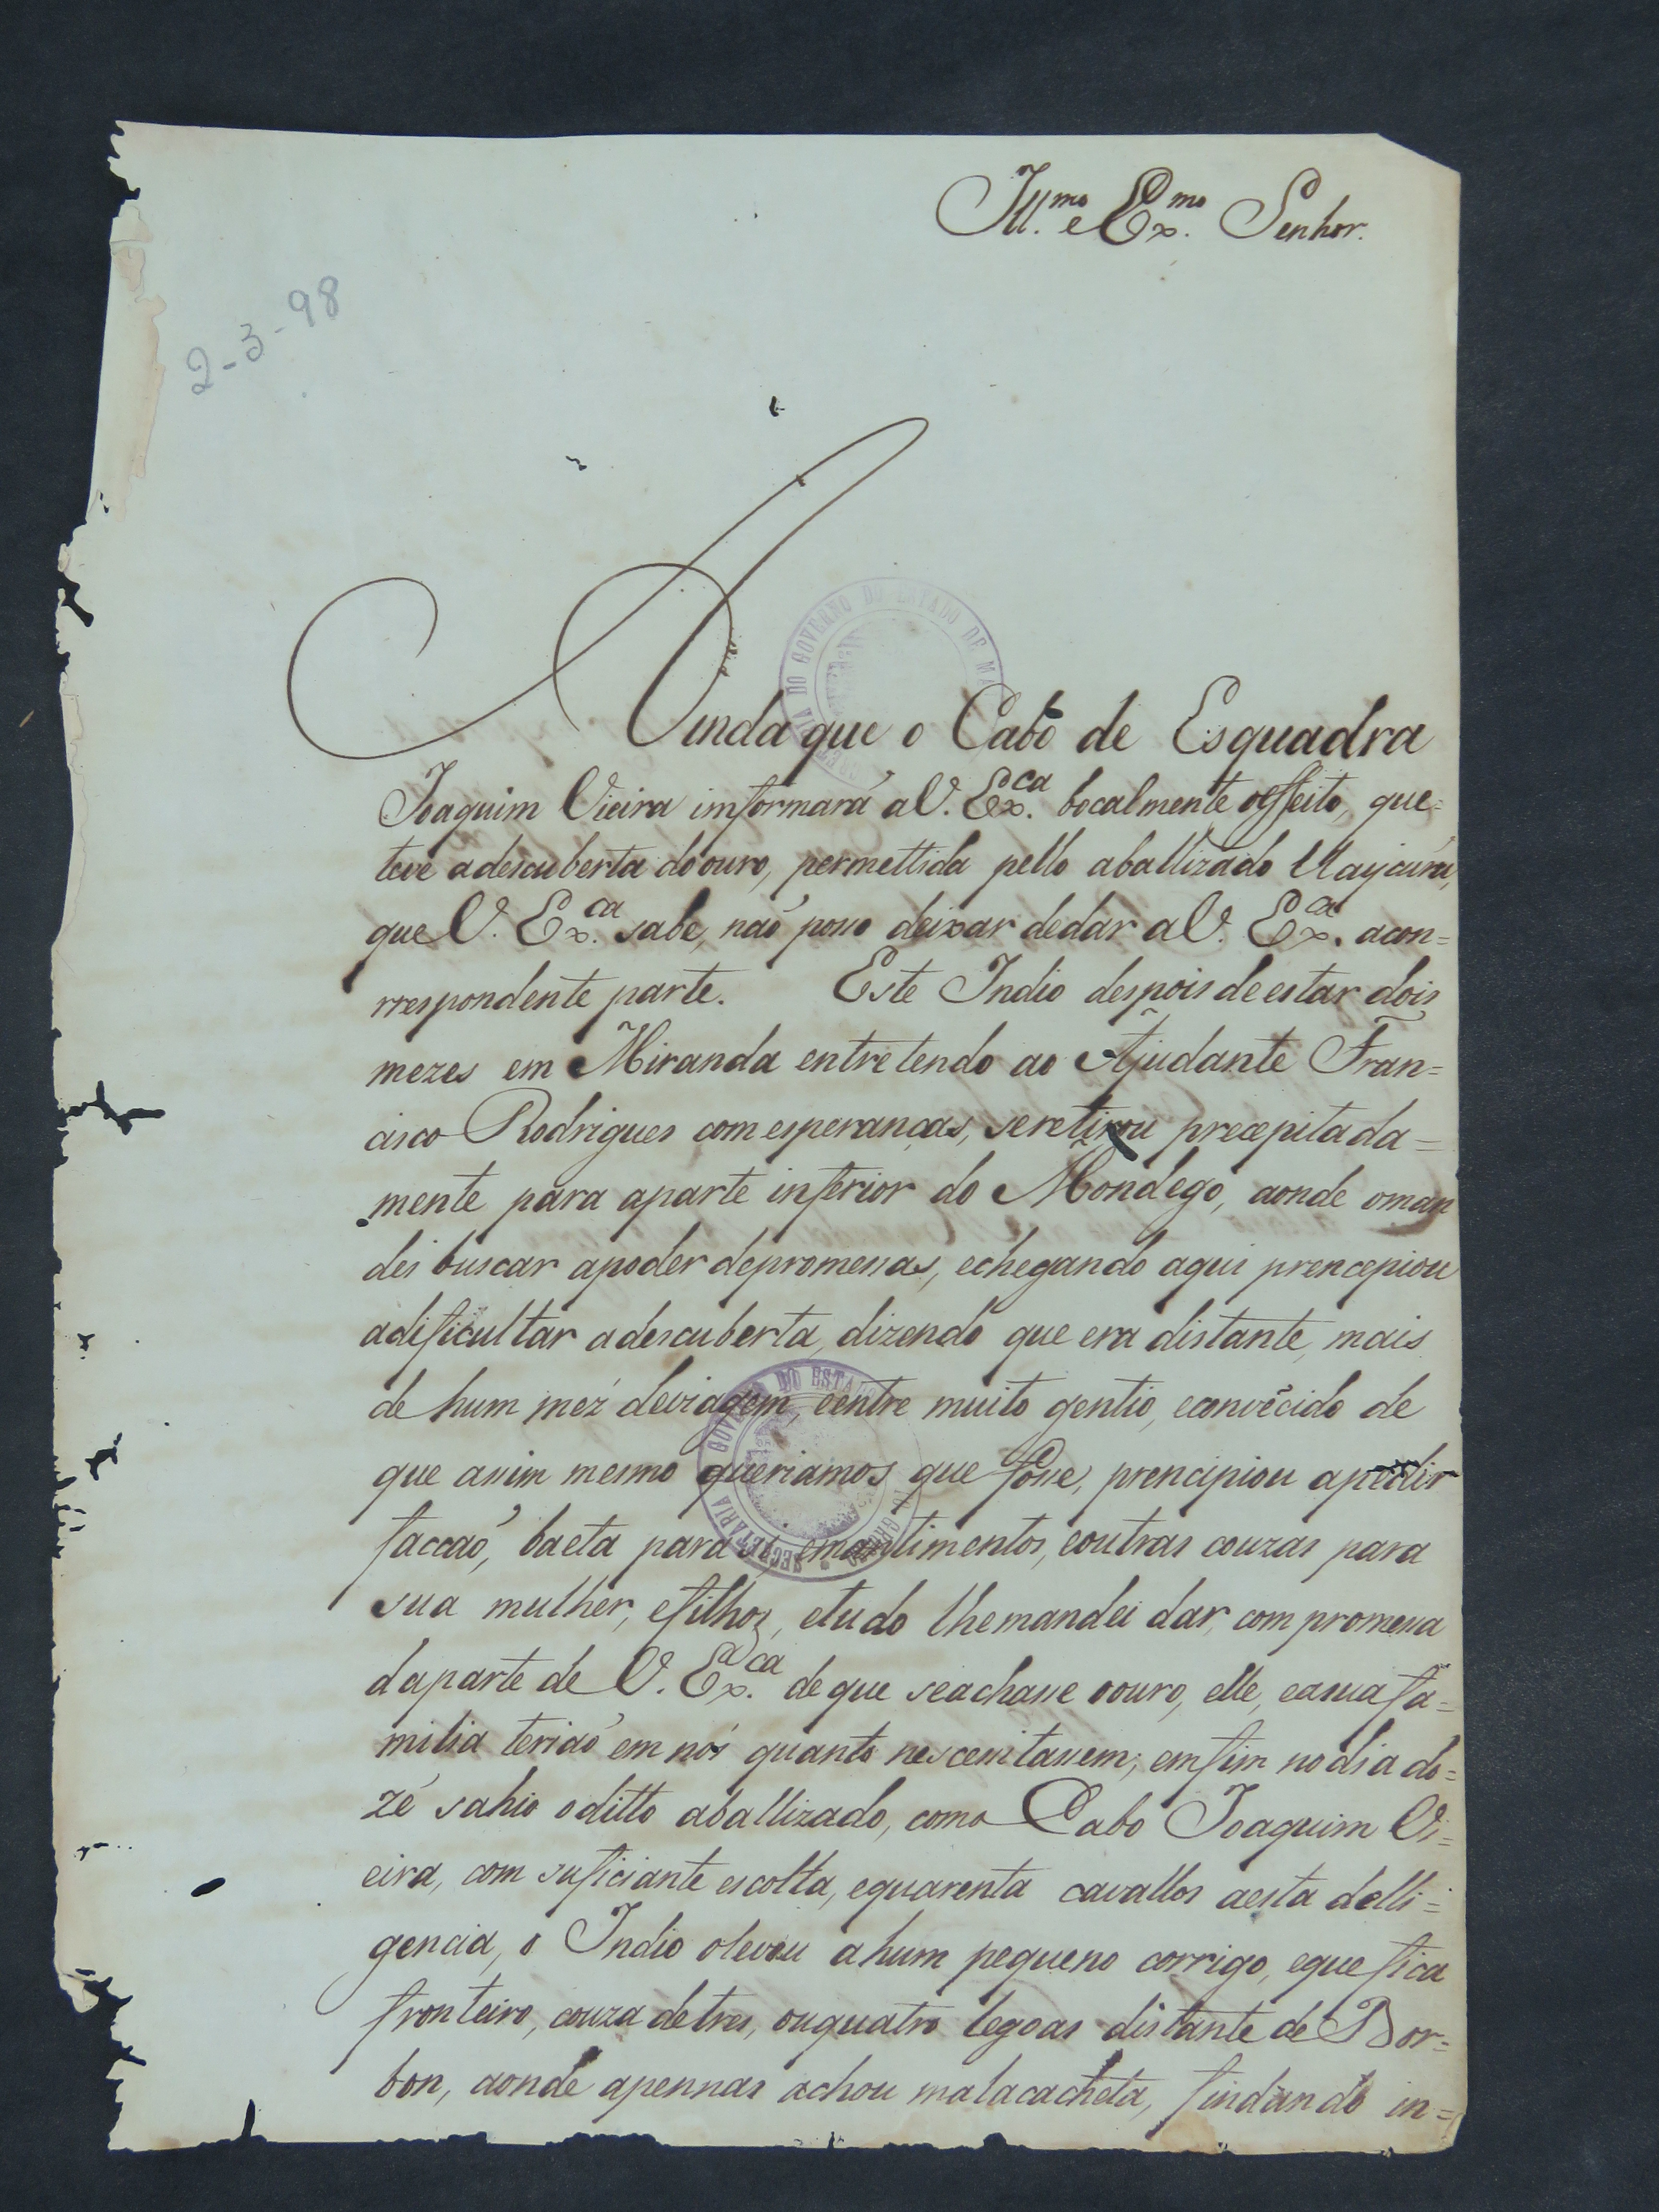 Ill.mo e Ex.mo Senhor.
2-3-98
Ainda que o Cabo de Esquadra
Joaquim Vieira imformará a V. Ex.ca bocalmente oeffeito, que=
teve adescuberta do ouro, permettida pello aballizado
que V. Ex.ca sabe, naó posso deixar dedar a V. Ex.ca acon=
rrespondente parte. Este Indio despois de estar dois
mezes em Miranda entretendo ao Ajudante Fran=
cisco Rodrigues com esperanças, se retirou precepitada=
mente para aparte inferior do Mondego, aonde oman
dei buscar apoder depromessas, echegando aqui prencepiou
adificultar adescuberta, dizendo que era distante, mais
de hum méz deviagem eentre muito gentio, econvẽcido de
que assim mesmo queriamos que fosse, prencipiou apedir
faccaó, baeta para si, emantimentos, eoutras couzas para
sua mulher, efilhos, etudo lhemandei dar, com promessa
daparte de V. Ex.ca de que seachasse oouro, elle, easua fa=
milia teriaó em nós quanto nescessitassem; emfim no dia do=
zé sahio oditto aballizado, como Cabo Joaquim Vi=
eira, com suficiante escolta, equarenta cavallos aesta delli=
gencia, o Indio olevou ahum pequeno corrigo, eque fica
fronteiro, couza detres, ouquatro legoas distante de Bor=
bon, aonde apennas achou malacacheta, findando in=
SECRETARIA DO GOVERNO DO ESTADO DE MA
SECRETARIA GOVERNO DO ESTADO